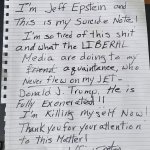 I'm Jeff Epstein and
This is my Suicide Note!
I'm so tired of this shit
and what the LIBERAL
Media are doing to my
friend aquaintance, who
Never flew on my JET -
Donald J. Trump. He is
fully Exonerated!!
I'm Killing myself Now!
Thank you for your attention
to this Matter!